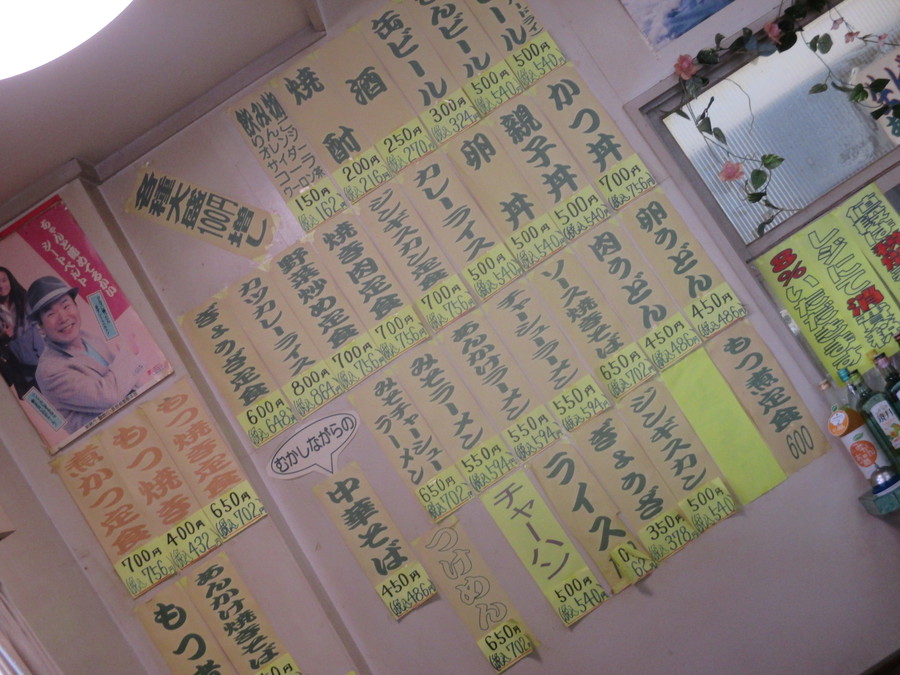 ビール
500円
税込540円
びんビール
500円
税込540円
缶ビール
300円
税込324円
酒
250円
税込270円
焼酎
200円
税込216円
飲み物
りんご
オレンジ
サイダー
コーラ
ウーロン茶
150円
税込162円
各種大盛
100円増し
かつ丼
700円
税込756円
親子丼
500円
税込540円
卵丼
500円
税込540円
カレーライス
500円
税込540円
ジンギスカン定食
700円
税込756円
焼き肉定食
700円
税込756円
野菜炒め定食
700円
税込756円
カツカレーライス
800円
税込864円
ぎょうざ定食
600円
税込648円
卵うどん
450円
税込486円
肉うどん
450円
税込486円
ソース焼きそば
650円
税込702円
チャーシューラーメン
550円
税込594円
あんかけラーメン
550円
税込594円
みそラーメン
550円
税込594円
みそチャーシューラーメン
650円
税込702円
もつ煮定食
600
ジンギスカン
500円
税込540円
ぎょうざ
350円
税込378円
ライス
チャーハン
500円
税込540円
つけめん
650円
税込702円
むかしながらの
中華そば
450円
税込486円
もつ焼き定食
650円
税込702円
もつ焼き
400円
税込432円
煮かつ定食
700円
税込756円
あんかけ焼きそば
もつ煮
レジにて
8%いただきます